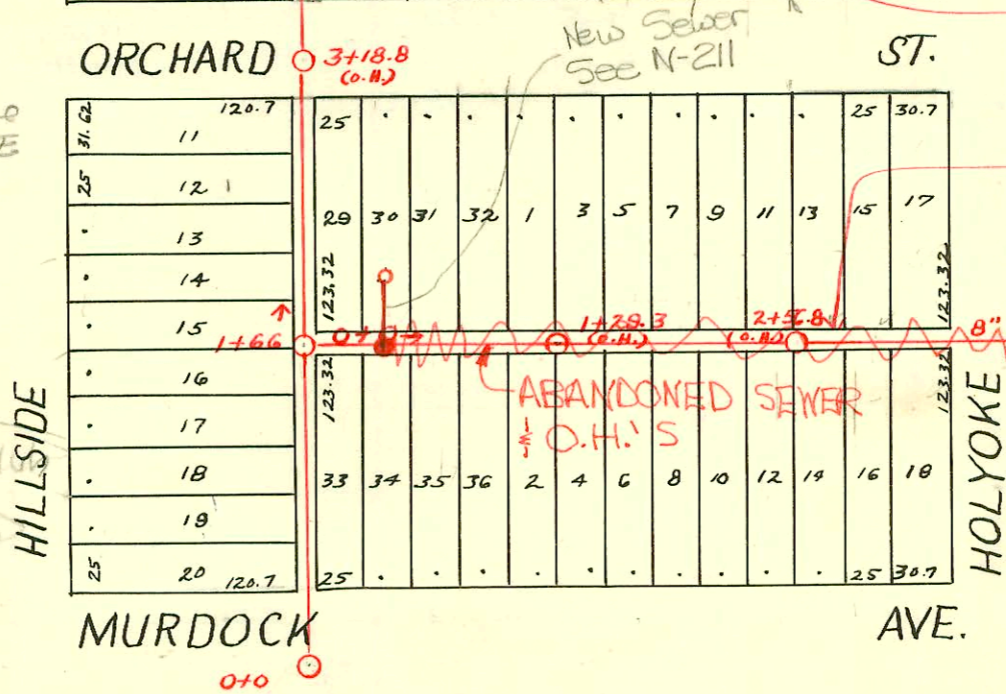 New Sewer
See N-211
ORCHARD ST.
3+18.8
(O.H.)
31.62 120.7
11
25 12
13
14
15
16
17
18
19
25 20 120.7
25 25 30.7
29 30 31 32 1 3 5 7 9 11 13 15 17
123.32 123.32
1+66
1+28.3
(O.H.)
(O.H.)
8"
123.32 123.32
ABANDONED SEWER
& O.H.'S
33 34 35 36 2 4 6 8 10 12 14 16 18
25 25 30.7
HILLSIDE
HOLYOKE
MURDOCK AVE.
0+0